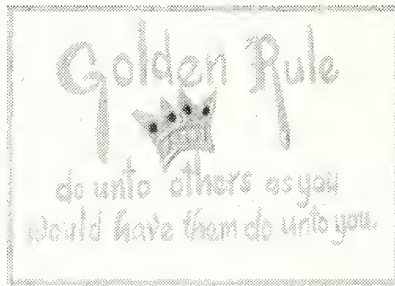 Golden Rule
do unto others as you
would have them do unto you.